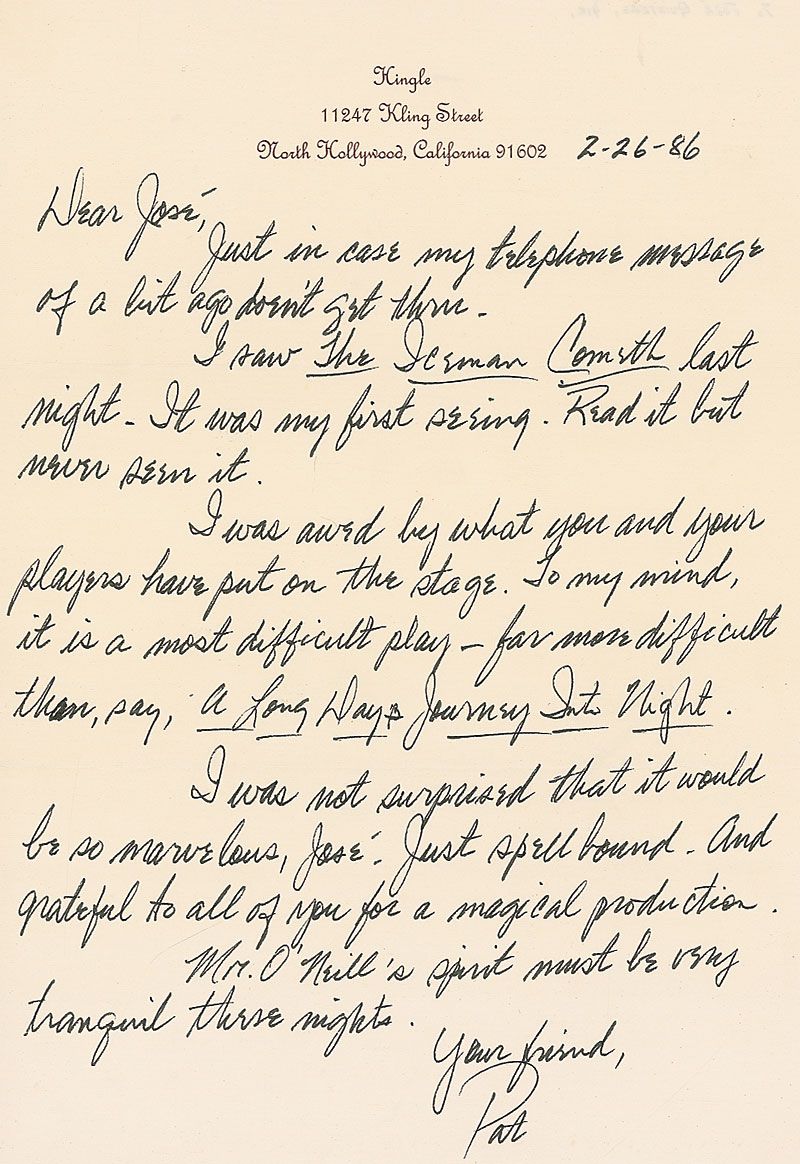 Hingle
11247 Kling Street
North Hollywood, California 91602 2-26-86
Dear José,
Just in case my telephone message
of a bit ago doesn't get thru.
I saw The Iceman Cometh last
night. It was my first seeing. Read it but
never seen it.
I was awed by what you and your
players have put on the stage. To my mind,
it is a most difficult play - far more difficult
than, say, A Long Days Journey Into Night.
I was not surprised that it would
be so marvelous, José. Just spell bound. And
grateful to all of you for a magical production.
Mr. O'Neill's spirit must be very
tranquil these nights.
Your friend,
Pat